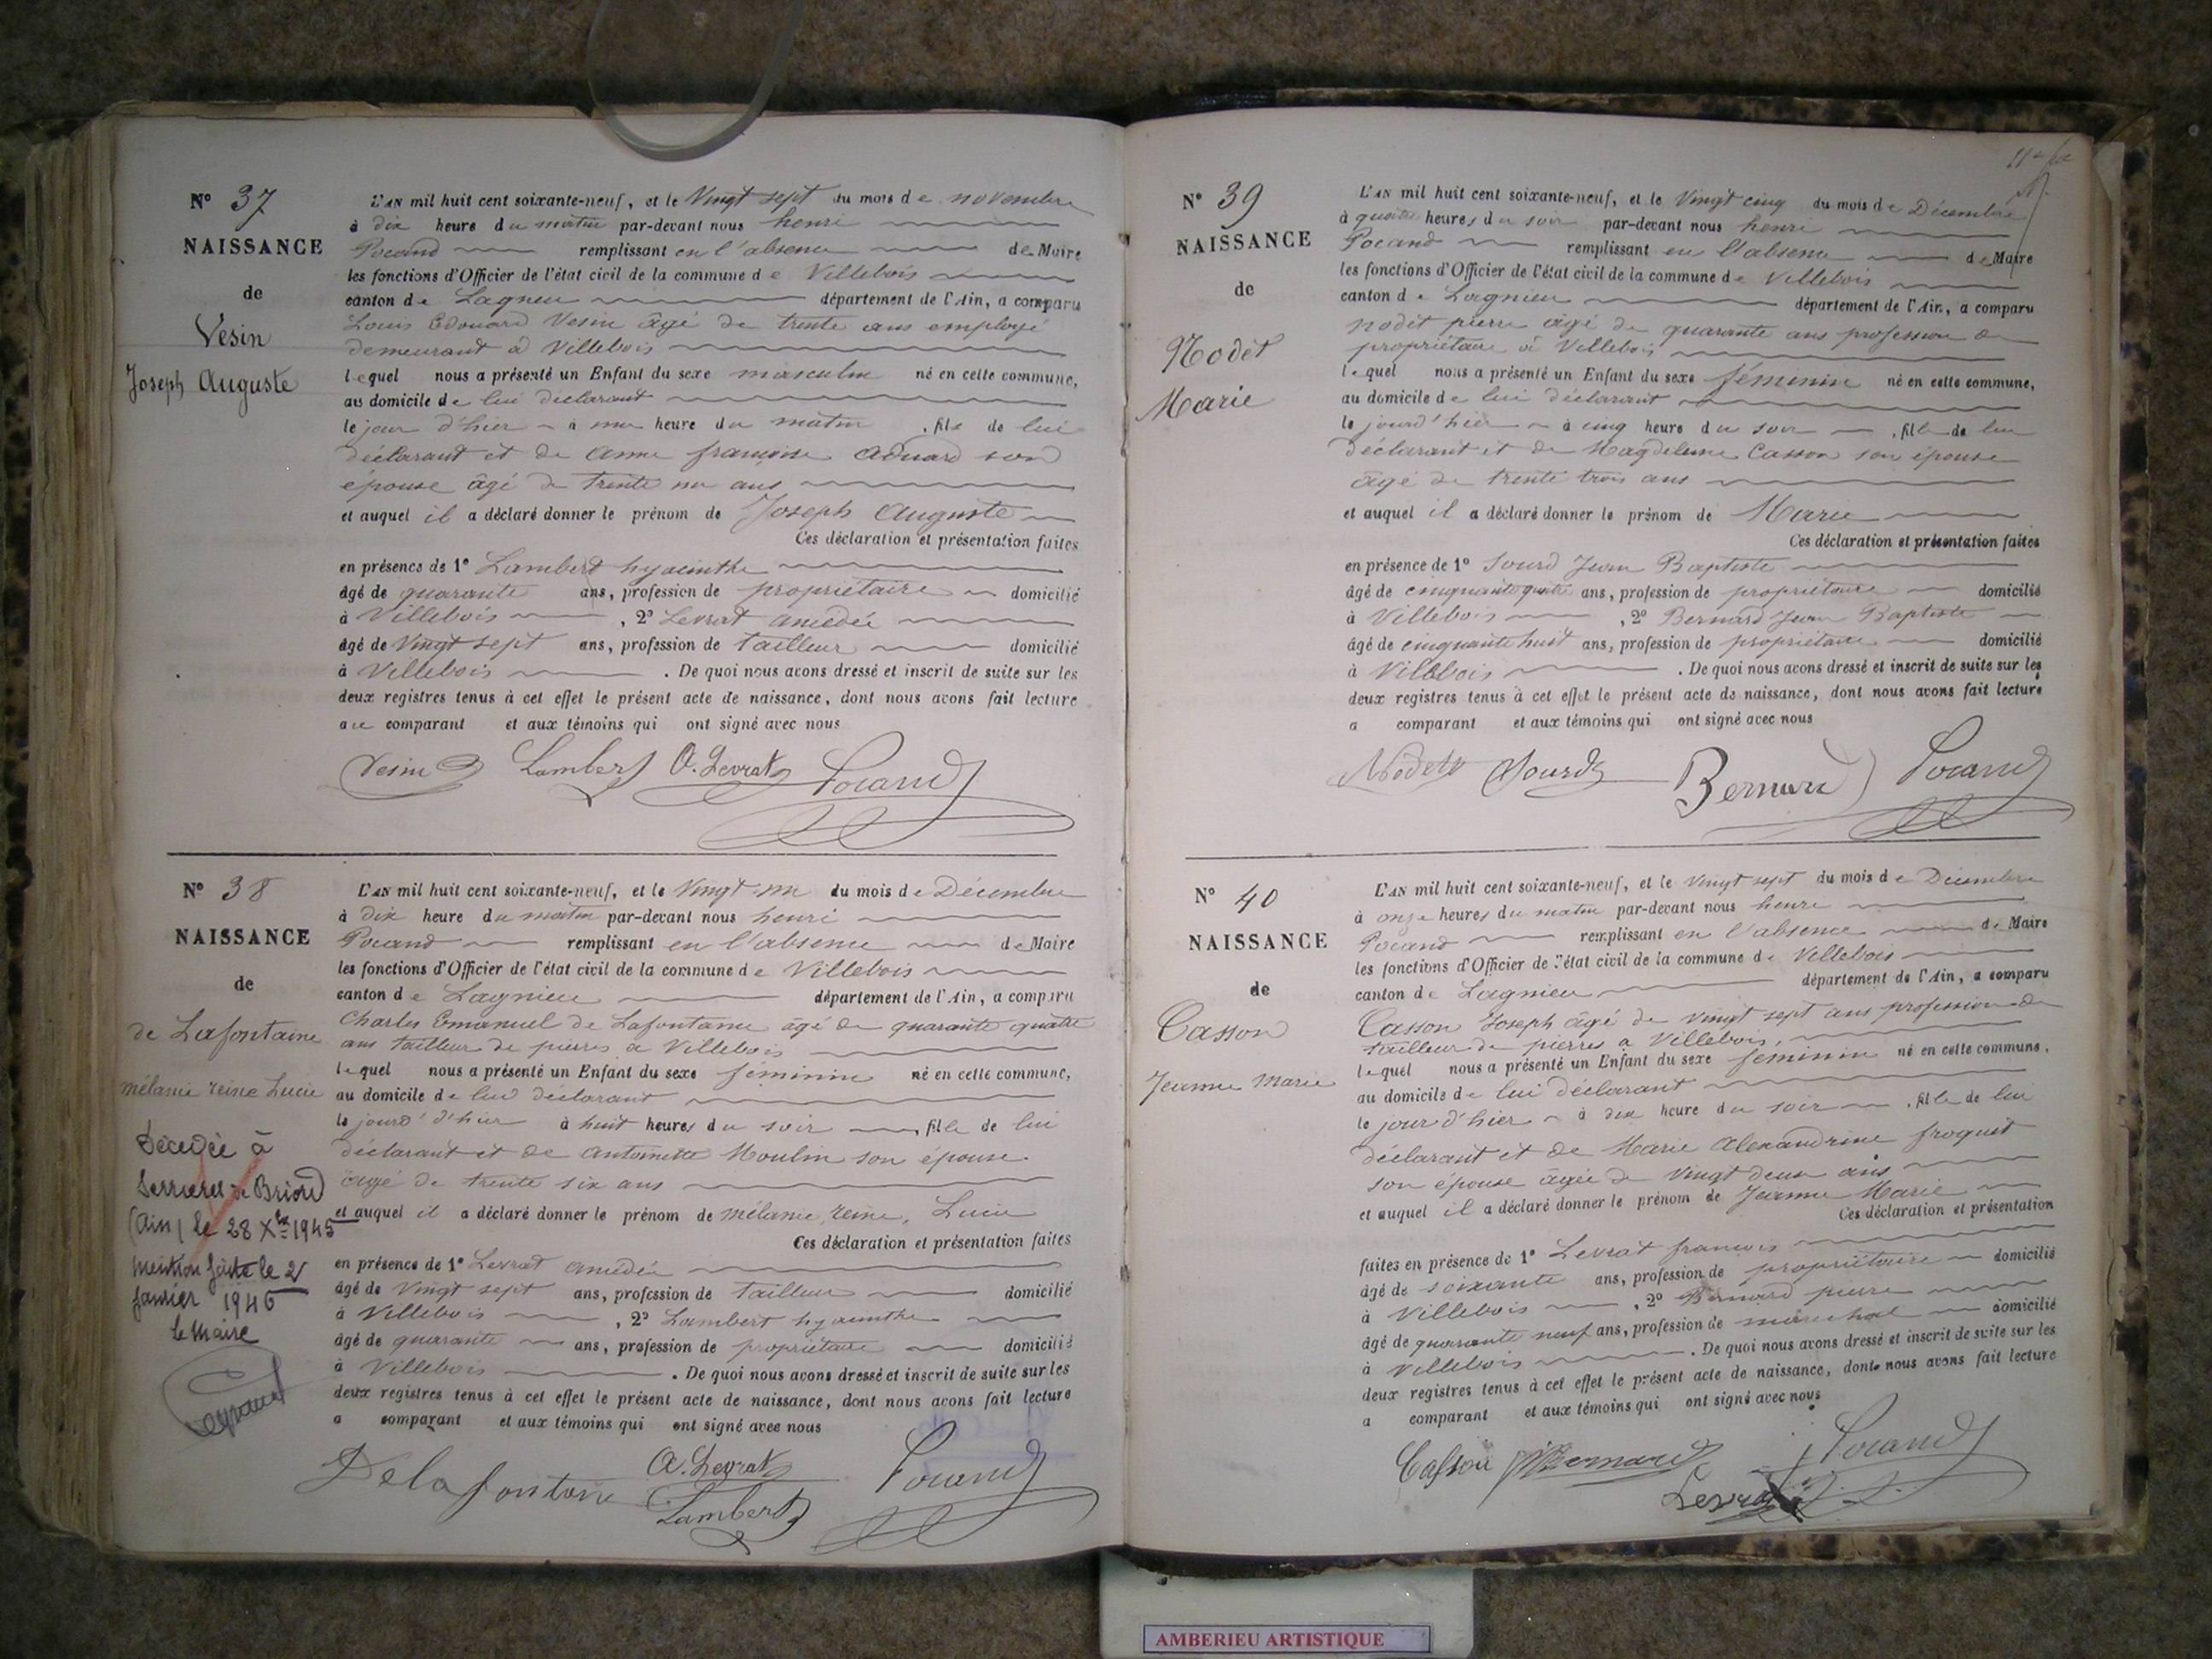 N° 37
NAISSANCE
de
Vesin
Joseph Auguste
L'AN mil huit cent soixante-neuf, et le Vingt sept du mois de novembre
à dix heure du matin par-devant nous henri
Pocand remplissant en l'absence de Maire
les fonctions d'Officier de l'état civil de la commune de Villebois
canton de Lagnieu département de l'Ain, a comparu
Louis Edouard Vesin âgé de trente ans employé
demeurant à Villebois
lequel nous a présenté un Enfant du sexe masculin né en cette commune,
au domicile de lui déclarant
le jour d'hier à une heure du matin , fils de lui
déclarant et de anne françoise son
épouse âgé de trente un ans
et auquel il a déclaré donner le prénom de Joseph Auguste
Ces déclaration et présentation faites
en présence de 1° Lambert hyacinthe
âgé de quarante ans, profession de propriétaire domicilié
à Villebois , 2° Levrat amédée
âgé de Vingt sept ans, profession de tailleur domicilié
à Villebois . De quoi nous avons dressé et inscrit de suite sur les
deux registres tenus à cet effet le présent acte de naissance, dont nous avons fait lecture
au comparant et aux témoins qui ont signé avec nous
Vesin Lambert A. Levrat Pocand
N° 38
NAISSANCE
de
de Lafontaine
mélanie reine Lucie
Décedée à
Serrieres de Briord
(Ain) le 28 Xbre 1945
mention faite le 2
janvier 1946
le Maire
L'AN mil huit cent soixante-neuf, et le Vingt un du mois de Décembre
à dix heure du matin par-devant nous henri
Pocand remplissant en l'absence de Maire
les fonctions d'Officier de l'état civil de la commune de Villebois
canton de Lagnieu département de l'Ain, a comparu
Charles Emanuel de Lafontaine âgé de quarante quatre
ans tailleur de pierres a Villebois
lequel nous a présenté un Enfant du sexe feminin né en cette commune,
au domicile de lui déclarant
le jourd'hier à huit heures du soir , fille de lui
déclarant et de Antoinette Moulin son épouse
âgé de trente six ans
et auquel il a déclaré donner le prénom de mélanie, reine, Lucie
Ces déclaration et présentation faites
en présence de 1° Levrat amédée
âgé de Vingt sept ans, profession de tailleur domicilié
à Villebois , 2° Lambert hyacinthe
âgé de quarante ans, profession de propriétaire domicilié
à Villebois . De quoi nous avons dressé et inscrit de suite sur les
deux registres tenus à cet effet le présent acte de naissance, dont nous avons fait lecture
a comparant et aux témoins qui ont signé avec nous
Delafontaine A. Levrat Pocand
Lambert
N° 39
NAISSANCE
de
Nodet
Marie
L'AN mil huit cent soixante-neuf, et le Vingt cinq du mois de Décembre
à quatre heures du soir par-devant nous henri
Pocand remplissant en l'absence de Maire
les fonctions d'Officier de l'état civil de la commune de Villebois
canton de Lagnieu département de l'Ain, a comparu
nodet pierre âgé de quarante ans profession de
propriétaire à Villebois
lequel nous a présenté un Enfant du sexe féminin né en cette commune,
au domicile de lui déclarant
le jourd'hier à cinq heure du soir , fille de lui
déclarant et de Magdeleine Casson son épouse
âgé de trente trois ans
et auquel il a déclaré donner le prénom de Marie
Ces déclaration et présentation faites
en présence de 1° Sourd Jean Baptiste
âgé de cinquante quatre ans, profession de propriétaire domicilié
à Villebois , 2° Bernard Jean Baptiste
âgé de cinquante huit ans, profession de propriétaire domicilié
à Villebois . De quoi nous avons dressé et inscrit de suite sur les
deux registres tenus à cet effet le présent acte de naissance, dont nous avons fait lecture
a comparant et aux témoins qui ont signé avec nous
Nodet Sourd Bernard Pocand
N° 40
NAISSANCE
de
Casson
Jeanne Marie
L'AN mil huit cent soixante-neuf, et le Vingt sept du mois de Décembre
à onze heures du matin par-devant nous henri
Pocand remplissant en l'absence de Maire
les fonctions d'Officier de l'état civil de la commune de Villebois
canton de Lagnieu département de l'Ain, a comparu
Casson Joseph âgé de vingt sept ans profession de
tailleur de pierres a Villebois,
lequel nous a présenté un Enfant du sexe feminin né en cette commune,
au domicile de lui déclarant
le jour d'hier à dix heure du soir , fille de lui
déclarant et de Marie Alexandrine froquet
son épouse âgée de Vingt deux ans
et auquel il a déclaré donner le prénom de Jeanne Marie
Ces déclaration et présentation
faites en présence de 1° Levrat francois
âgé de soixante ans, profession de propriétaire domicilié
à Villebois , 2° Bernard pierre
âgé de quarante neuf ans, profession de marechal domicilié
à Villebois . De quoi nous avons dressé et inscrit de suite sur les
deux registres tenus à cet effet le présent acte de naissance, dont nous avons fait lecture
a comparant et aux témoins qui ont signé avec nous
Casson Bernard Pocand
Levrat
AMBERIEU ARTISTIQUE